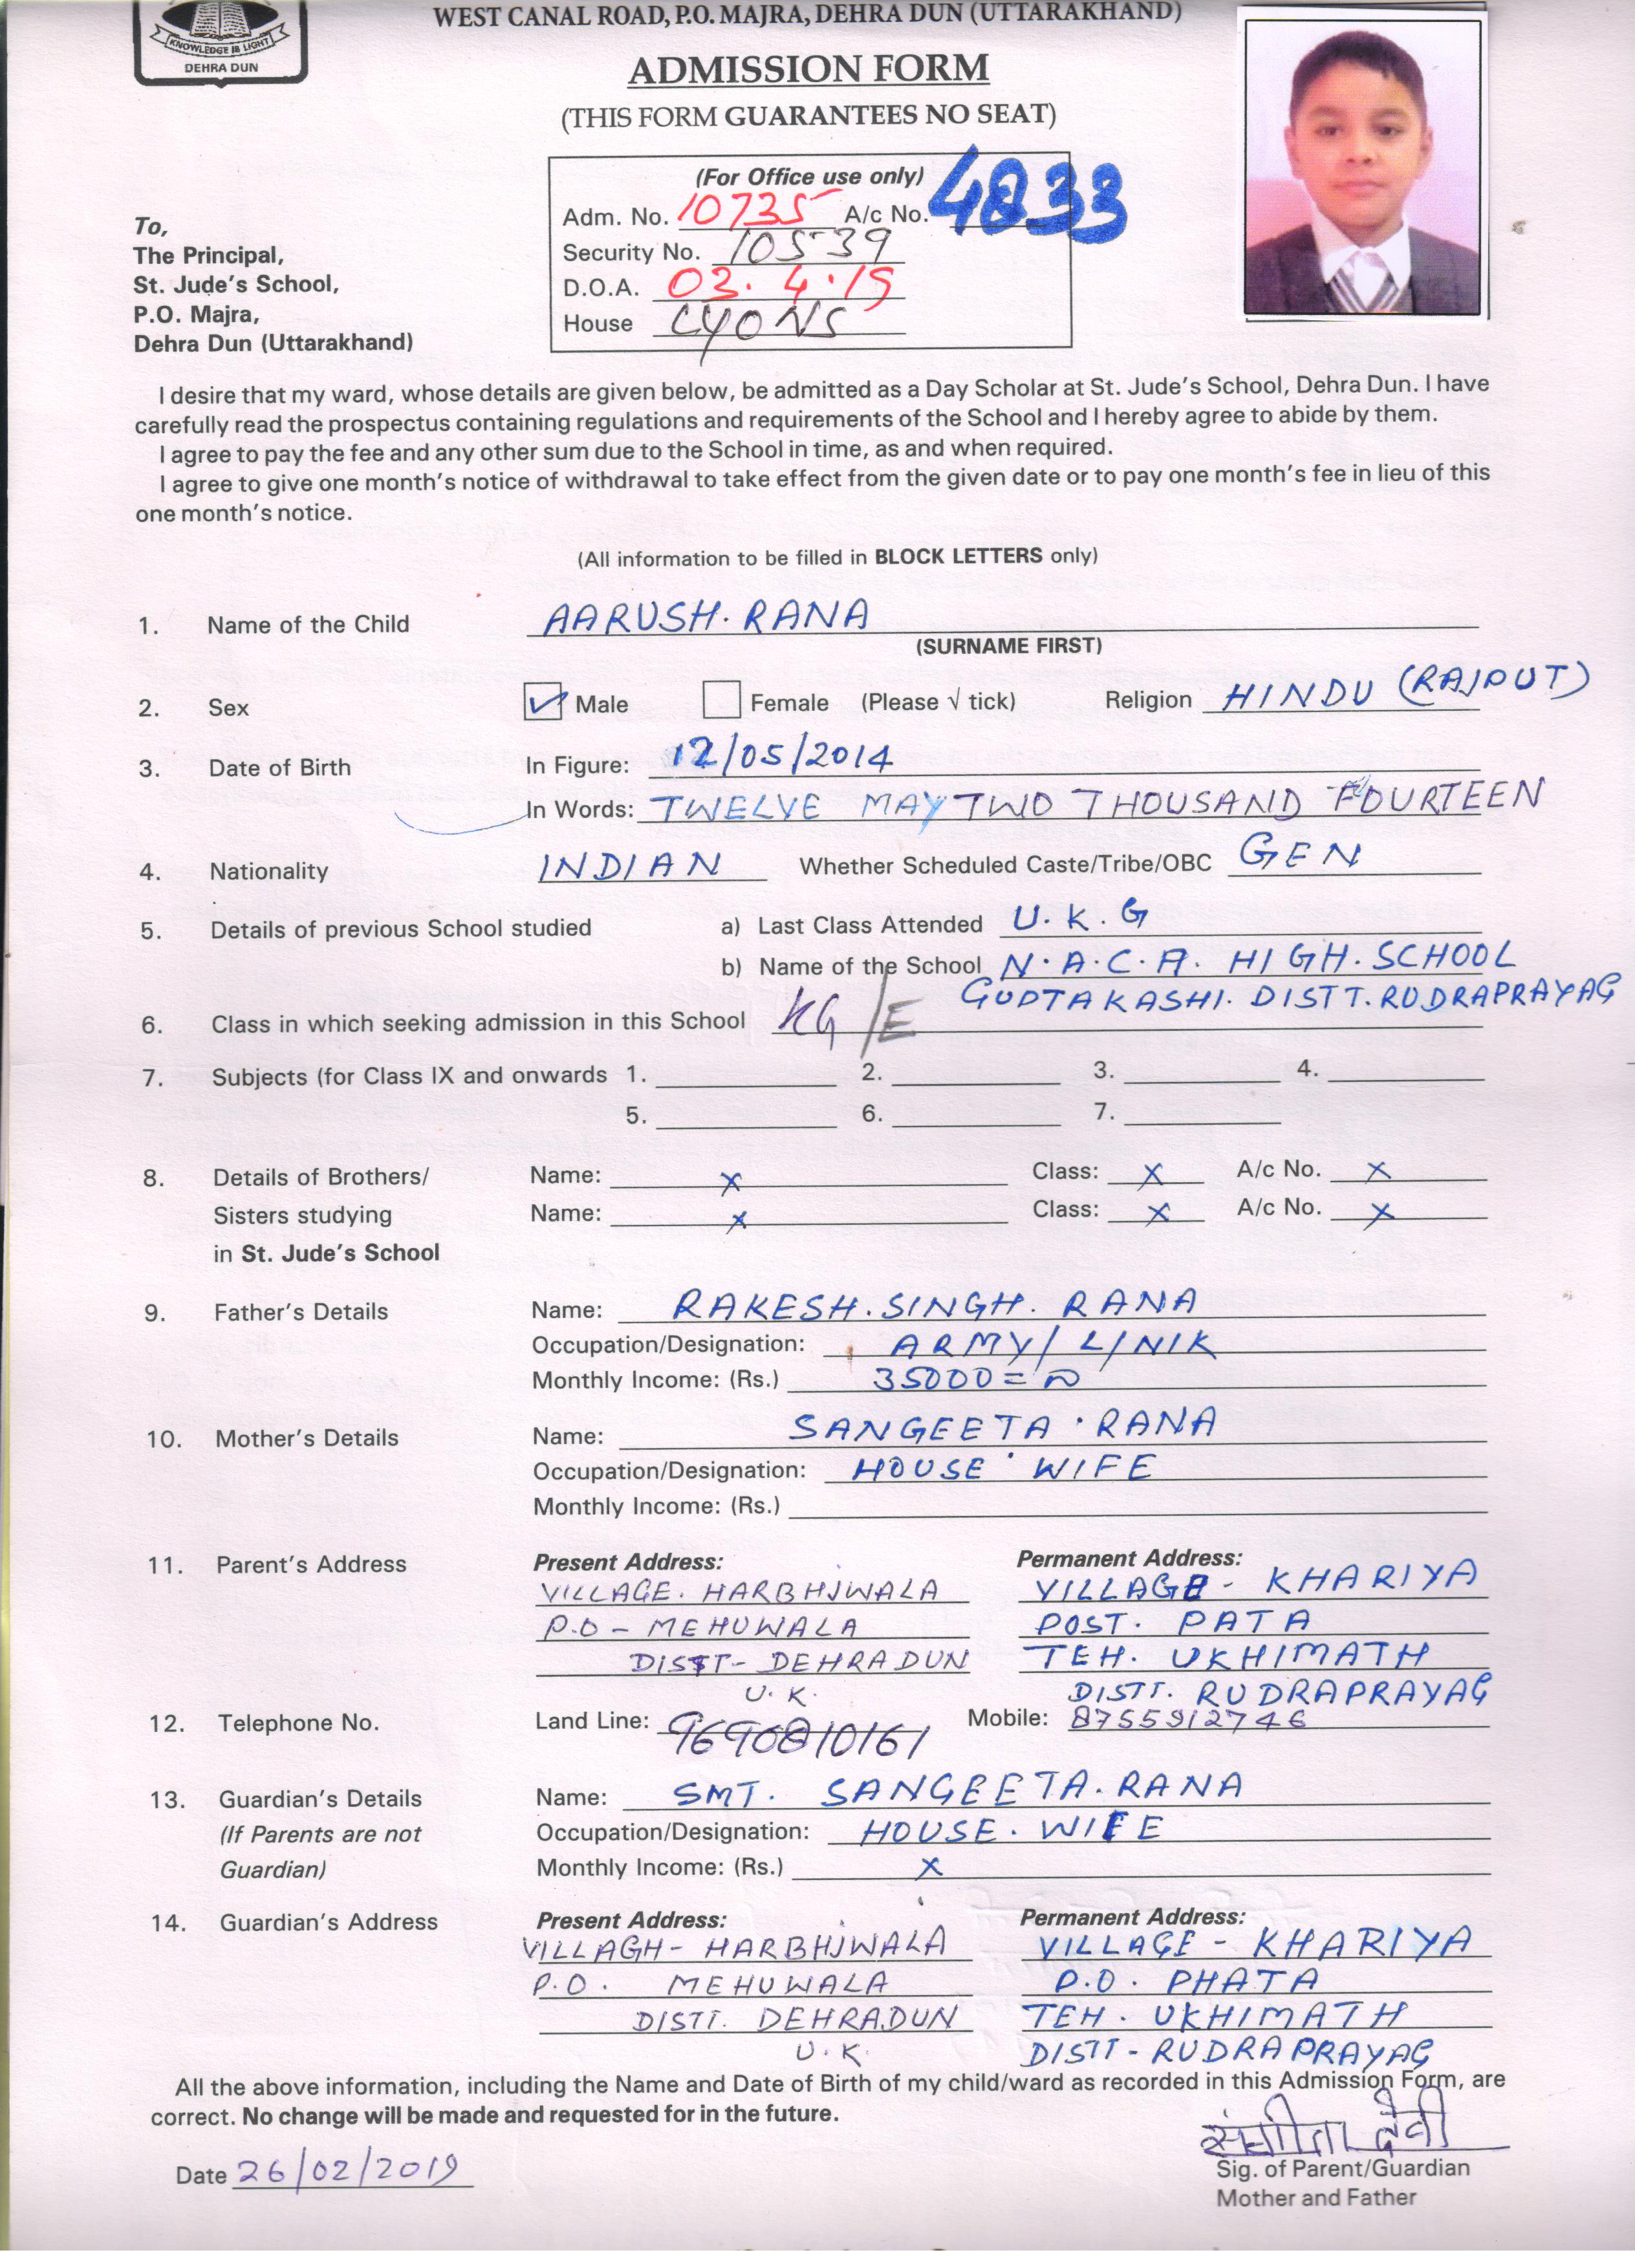 WEST CANAL ROAD, P.O. MAJRA, DEHRA DUN (UTTARAKHAND)
KNOWLEDGE IS LIGHT
DEHRA DUN
ADMISSION FORM
(THIS FORM GUARANTEES NO SEAT)
(For Office use only)
Adm. No. 10735 A/c No. 4833
Security No. 10539
D.O.A. 03.4.19
House LYONS
To,
The Principal,
St. Jude's School,
P.O. Majra,
Dehra Dun (Uttarakhand)
I desire that my ward, whose details are given below, be admitted as a Day Scholar at St. Jude's School, Dehra Dun. I have
carefully read the prospectus containing regulations and requirements of the School and I hereby agree to abide by them.
I agree to pay the fee and any other sum due to the School in time, as and when required.
I agree to give one month's notice of withdrawal to take effect from the given date or to pay one month's fee in lieu of this
one month's notice.
(All information to be filled in BLOCK LETTERS only)
1. Name of the Child AARUSH. RANA
(SURNAME FIRST)
2. Sex Male Female (Please √ tick) Religion HINDU (RAJPUT)
3. Date of Birth In Figure: 12/05/2014
In Words: TWELVE MAY TWO THOUSAND FOURTEEN
4. Nationality INDIAN Whether Scheduled Caste/Tribe/OBC GEN
5. Details of previous School studied a) Last Class Attended U.K.G
b) Name of the School N.A.C.A. HIGH.SCHOOL
GUPTAKASHI. DISTT. RUDRAPRAYAG
6. Class in which seeking admission in this School KG/E
7. Subjects (for Class IX and onwards 1. 2. 3. 4.
5. 6. 7.
8. Details of Brothers/ Name: x Class: x A/c No. x
Sisters studying Name: x Class: x A/c No. x
in St. Jude's School
9. Father's Details Name: RAKESH.SINGH. RANA
Occupation/Designation: ARMY/ L/NIK
Monthly Income: (Rs.) 35000=
10. Mother's Details Name: SANGEETA . RANA
Occupation/Designation: HOUSE WIFE
Monthly Income: (Rs.)
11. Parent's Address Present Address: Permanent Address:
VILLAGE. HARBHJWALA VILLAGE - KHARIYA
P.O - MEHUWALA POST. PATA
DISTT- DEHRADUN TEH. UKHIMATH
U.K. DISTT. RUDRAPRAYAG
12. Telephone No. Land Line: 9690810161 Mobile: 8755912746
13. Guardian's Details Name: SMT. SANGEETA. RANA
(If Parents are not Occupation/Designation: HOUSE. WIFE
Guardian) Monthly Income: (Rs.) x
14. Guardian's Address Present Address: Permanent Address:
VILLAGH - HARBHJWALA VILLAGE - KHARIYA
P.O. MEHUWALA P.O. PHATA
DISTT. DEHRADUN TEH. UKHIMATH
U.K. DISTT - RUDRAPRAYAG
All the above information, including the Name and Date of Birth of my child/ward as recorded in this Admission Form, are
correct. No change will be made and requested for in the future.
संगीता देवी
Date 26/02/2019
Sig. of Parent/Guardian
Mother and Father